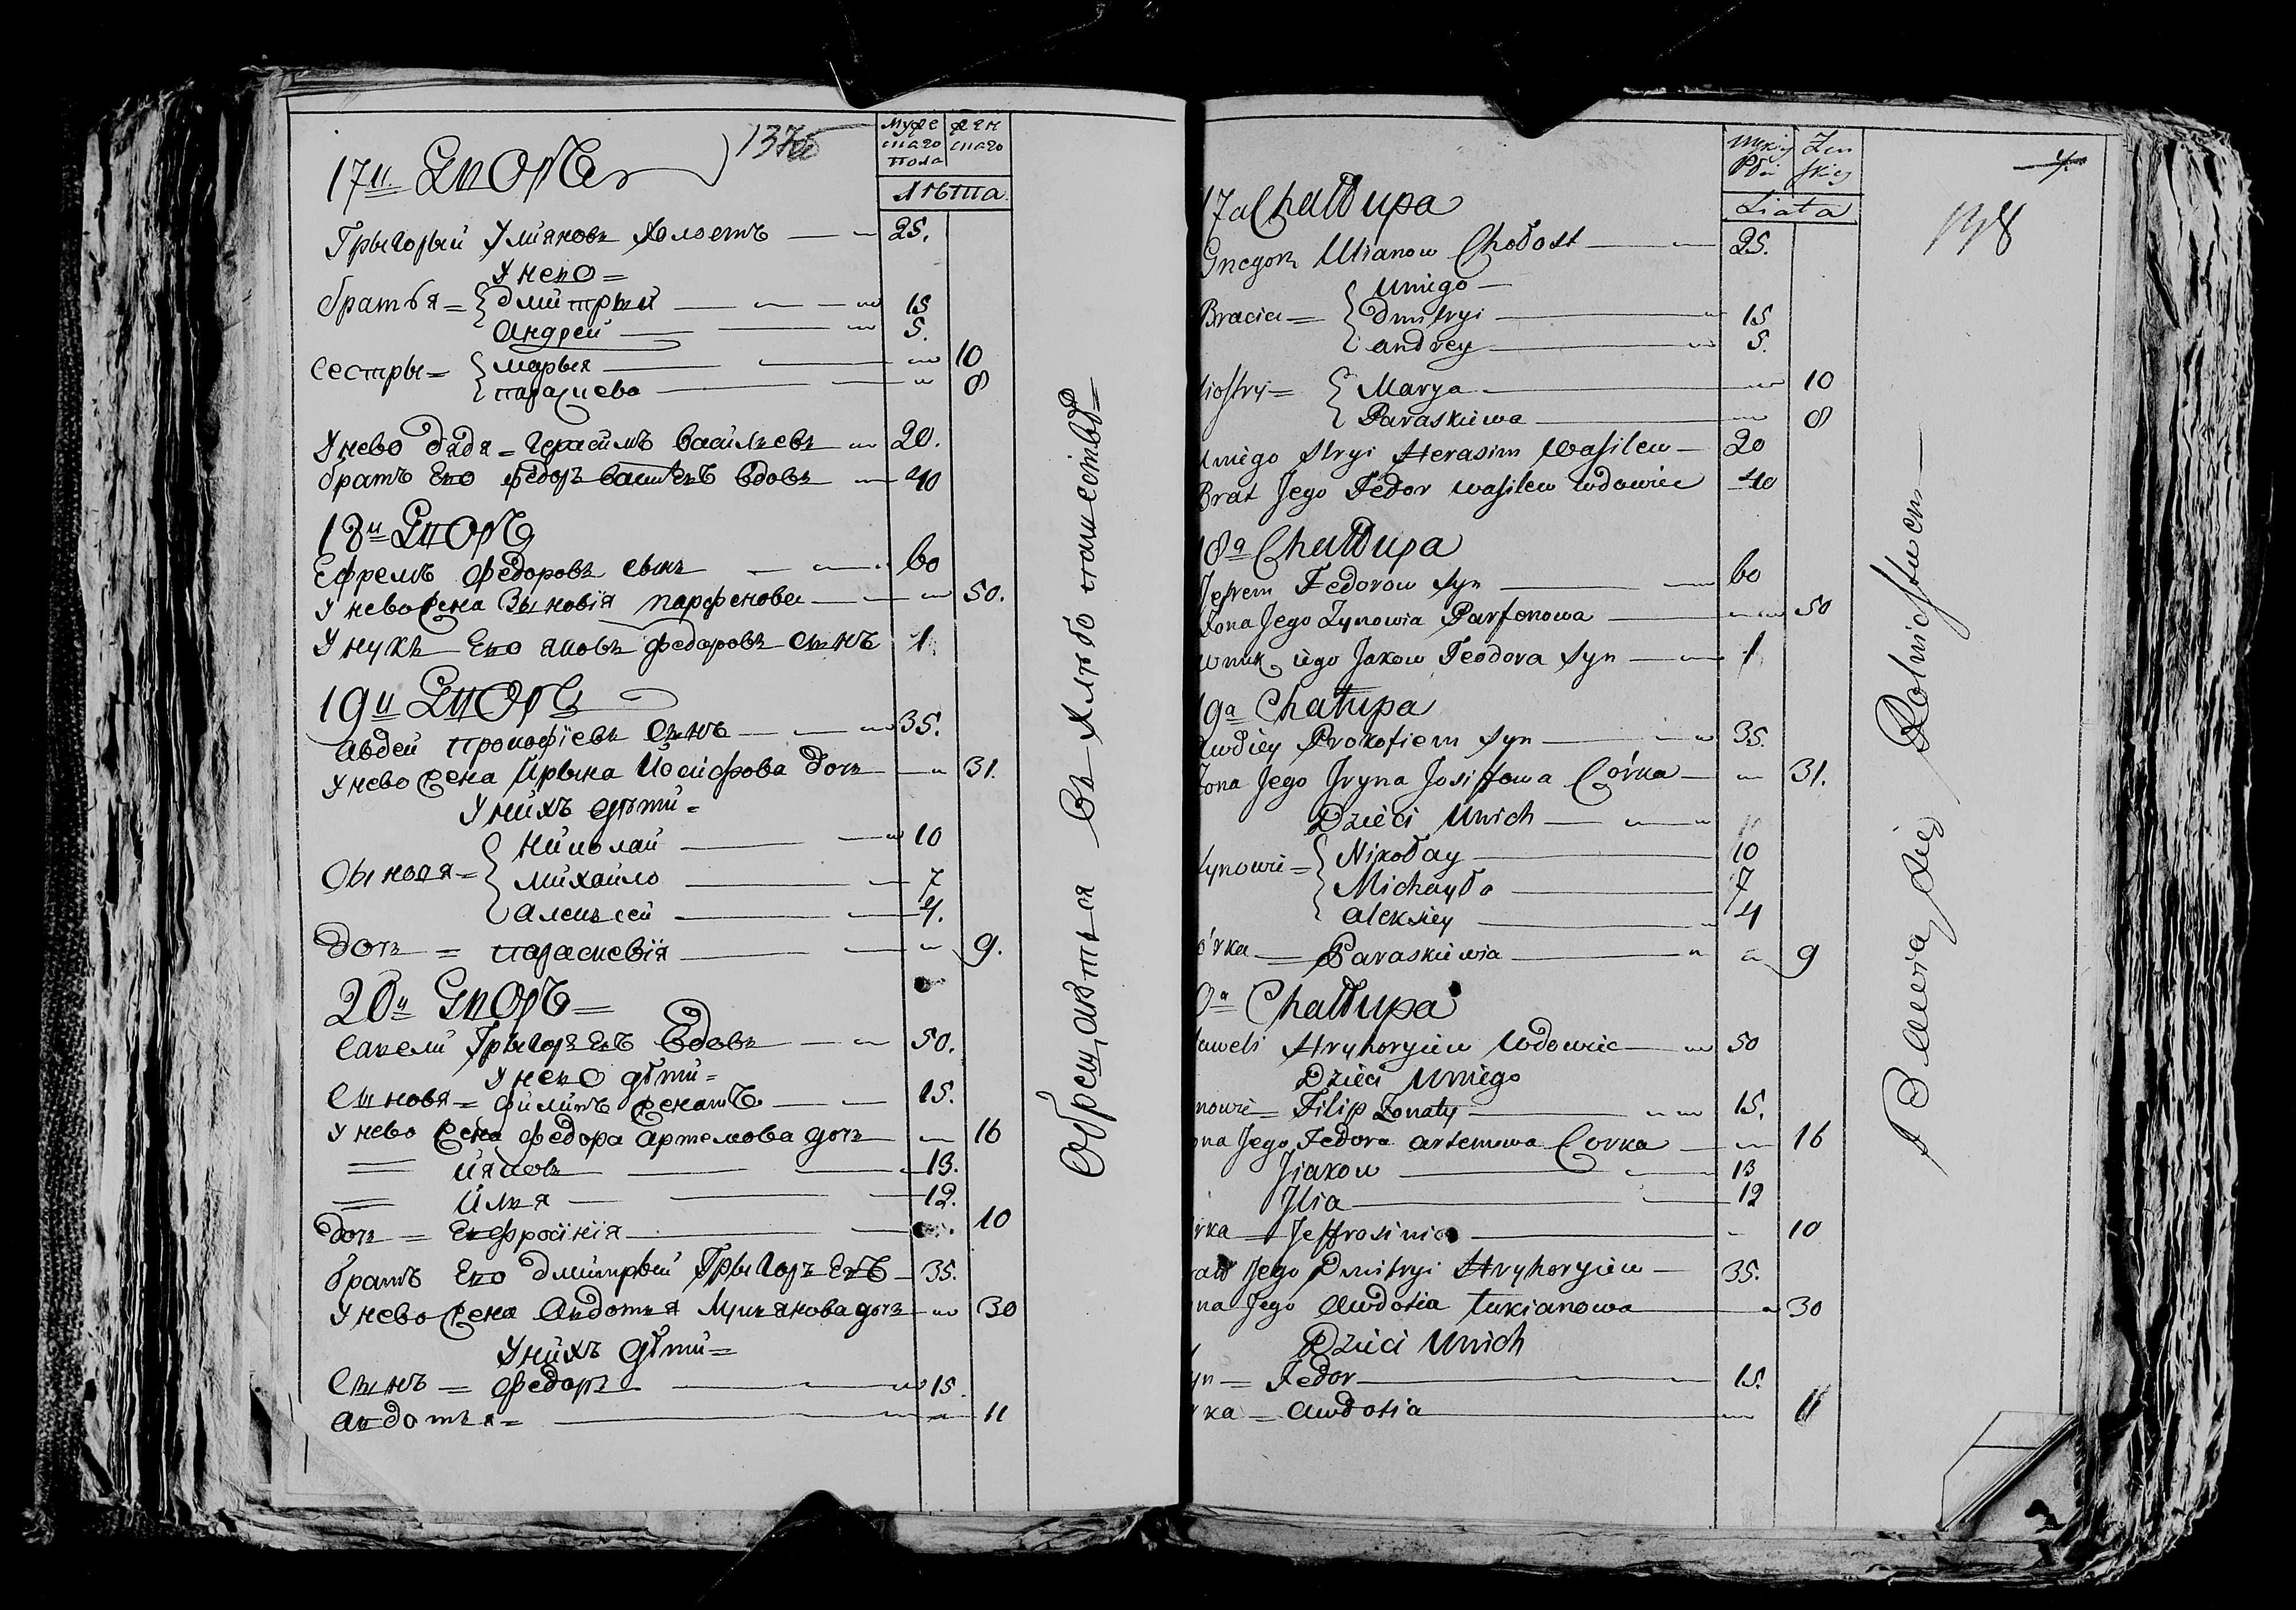 17й Дворъ
137об
Муже
скаго
пола
жен
скаго
Лѣта
Грыгорый Улияновъ Холостъ 25.
У нево =
братья = Дмитрый 15
Андрей 5.
Сестры = Марья 10
Параскева 8
У нево дядя = Герасимъ Васильевъ 20.
братъ Ево Федоръ Васильевъ вдовъ 40
18й Дворъ
Ефремъ Федоровъ сынъ 60
У нево жена Зыновія Парфенова 50.
Унукъ Ево Яковъ Федоровъ сынъ 1.
19й Дворъ
Авдей Прокофіевъ сынъ 35.
У нево жена Ирына Иосифова дочь 31.
У нихъ дѣти =
Сыновя = Николай 10
Михайло 7
Алексей 4.
Дочь = Параскевія 9.
20й Дворъ =
Савели Грыгорьевъ вдовъ 50.
У нево дѣти =
Сыновя = Филипъ женатъ 15.
У нево жена Федора Артемова дочь 16
=Ияковъ 13.
= Илья 12.
Дочь = Евфросінія 10
братъ Ево Дмитрый Грыгорьевъ 35.
У нево жена Авдотья Лукьянова дочь 30
У нихъ дѣти =
Сынъ = Федоръ 15.
Авдотья = 11
Обращаются въ хлѣбопашествѣ =
Męski
Płci
Żen
skiey
Liata
4.
138
17a Chałłupa
Gregorz Ulianow Chołost 25.
Uniego
Bracia = Dmitryi 15
Andrey 5.
iostry = Marya 10
Paraskiewa 8
Uniego Stryi Herasim Wasilew 20
Brat Jego Fedor Wasilew Wdowiec 40
18a Chałłupa
Jefrem Fedorow Syn 60
Żona Jego Zynowia Parfenowa 50
Wnuk iego Jakow Teodora Syn 1
19a Chałupa
Awdiey Prokofiew Syn 35.
Żona Jego Jryna Josiffowa Córka 31.
Dzieci Unich
Synowie = Nikołay 10
Michayło 7
Aleksiey 4
órka = Paraskiewia 9
0a Chałłupa
aweli Hryhoryiew Wdowiec 50
Dzieci Uniego
nowie = Filip Żonaty 15.
ona Jego Fedora Artemowa Corka 16
Jiakow 13
Jlia 12
rka = Jeffrosinia 10
rat Jego Dmitryi Hryhoryiew 35.
na Jego Awdotia Łukianowa 30
Dzieci Unich
yn = Fedor 15.
rka = Awdotia 11
Bawią się Rolnictwem